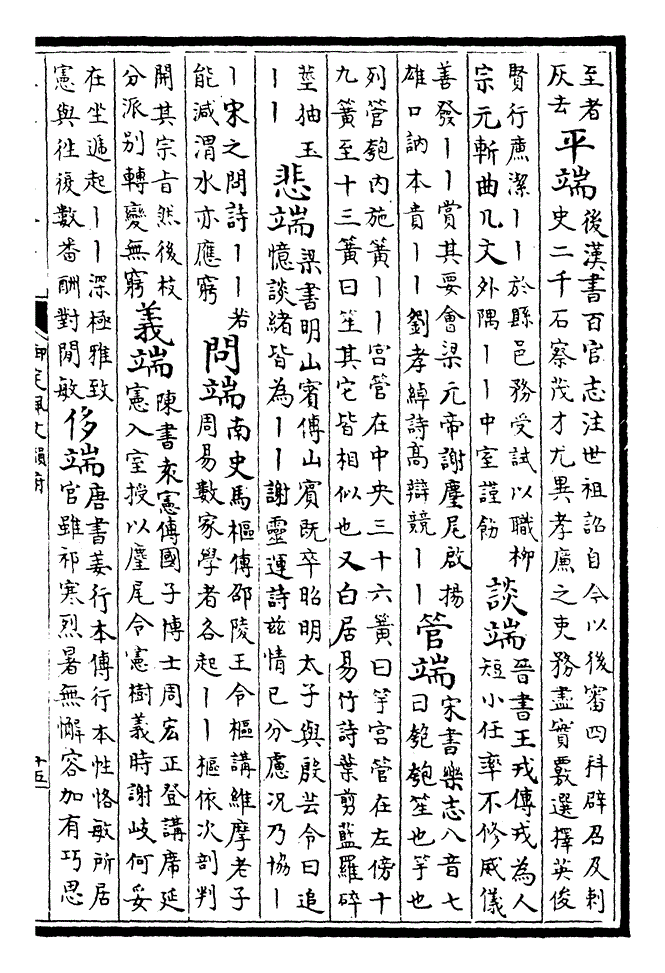 至者
灰去
平端
後漢書百官志注世祖詔自今以後審四科辟召及刺
史二千石察茂才尤異孝廉之吏務盡實覈選擇英俊
賢行廉潔丨丨於縣邑務受試以職柳
宗元斬曲几文外隅丨丨中室謹飭
談端
晉書王戎傳戎為人
短小任率不修威儀
善發丨丨賞其要會梁元帝謝麈尾啟揚
雄口訥本貴丨丨劉孝綽詩高辯競丨丨
管端
宋書樂志八音七
曰匏匏笙也竽也
列管匏內施簧丨丨宫管在中央三十六簧曰竽宫管在左傍十
九簧至十三簧曰笙其它皆相似也又白居易竹詩葉剪藍羅碎
莖抽玉
丨丨
悲端
梁書明山賓傳山賓既卒昭明太子與殷芸令曰追
憶談緒皆為丨丨謝靈運詩兹情已分慮况乃協丨
丨宋之問詩丨丨若
能減渭水亦應窮
問端
南史馬樞傳邵陵王令樞講維摩老子
周易數家學者各起丨丨樞依次剖判
開其宗旨然後枝
分派别轉變無窮
義端
陳書袁憲傳國子博士周宏正登講席延
憲入室授以麈尾令憲樹義時謝岐何妥
在坐遞起丨丨深極雅致
憲與往復數番酬對閒敏
侈端
唐書姜行本傳行本性恪敏所居
官雖祁寒烈暑無懈容加有巧思
御定佩文韻府
十五